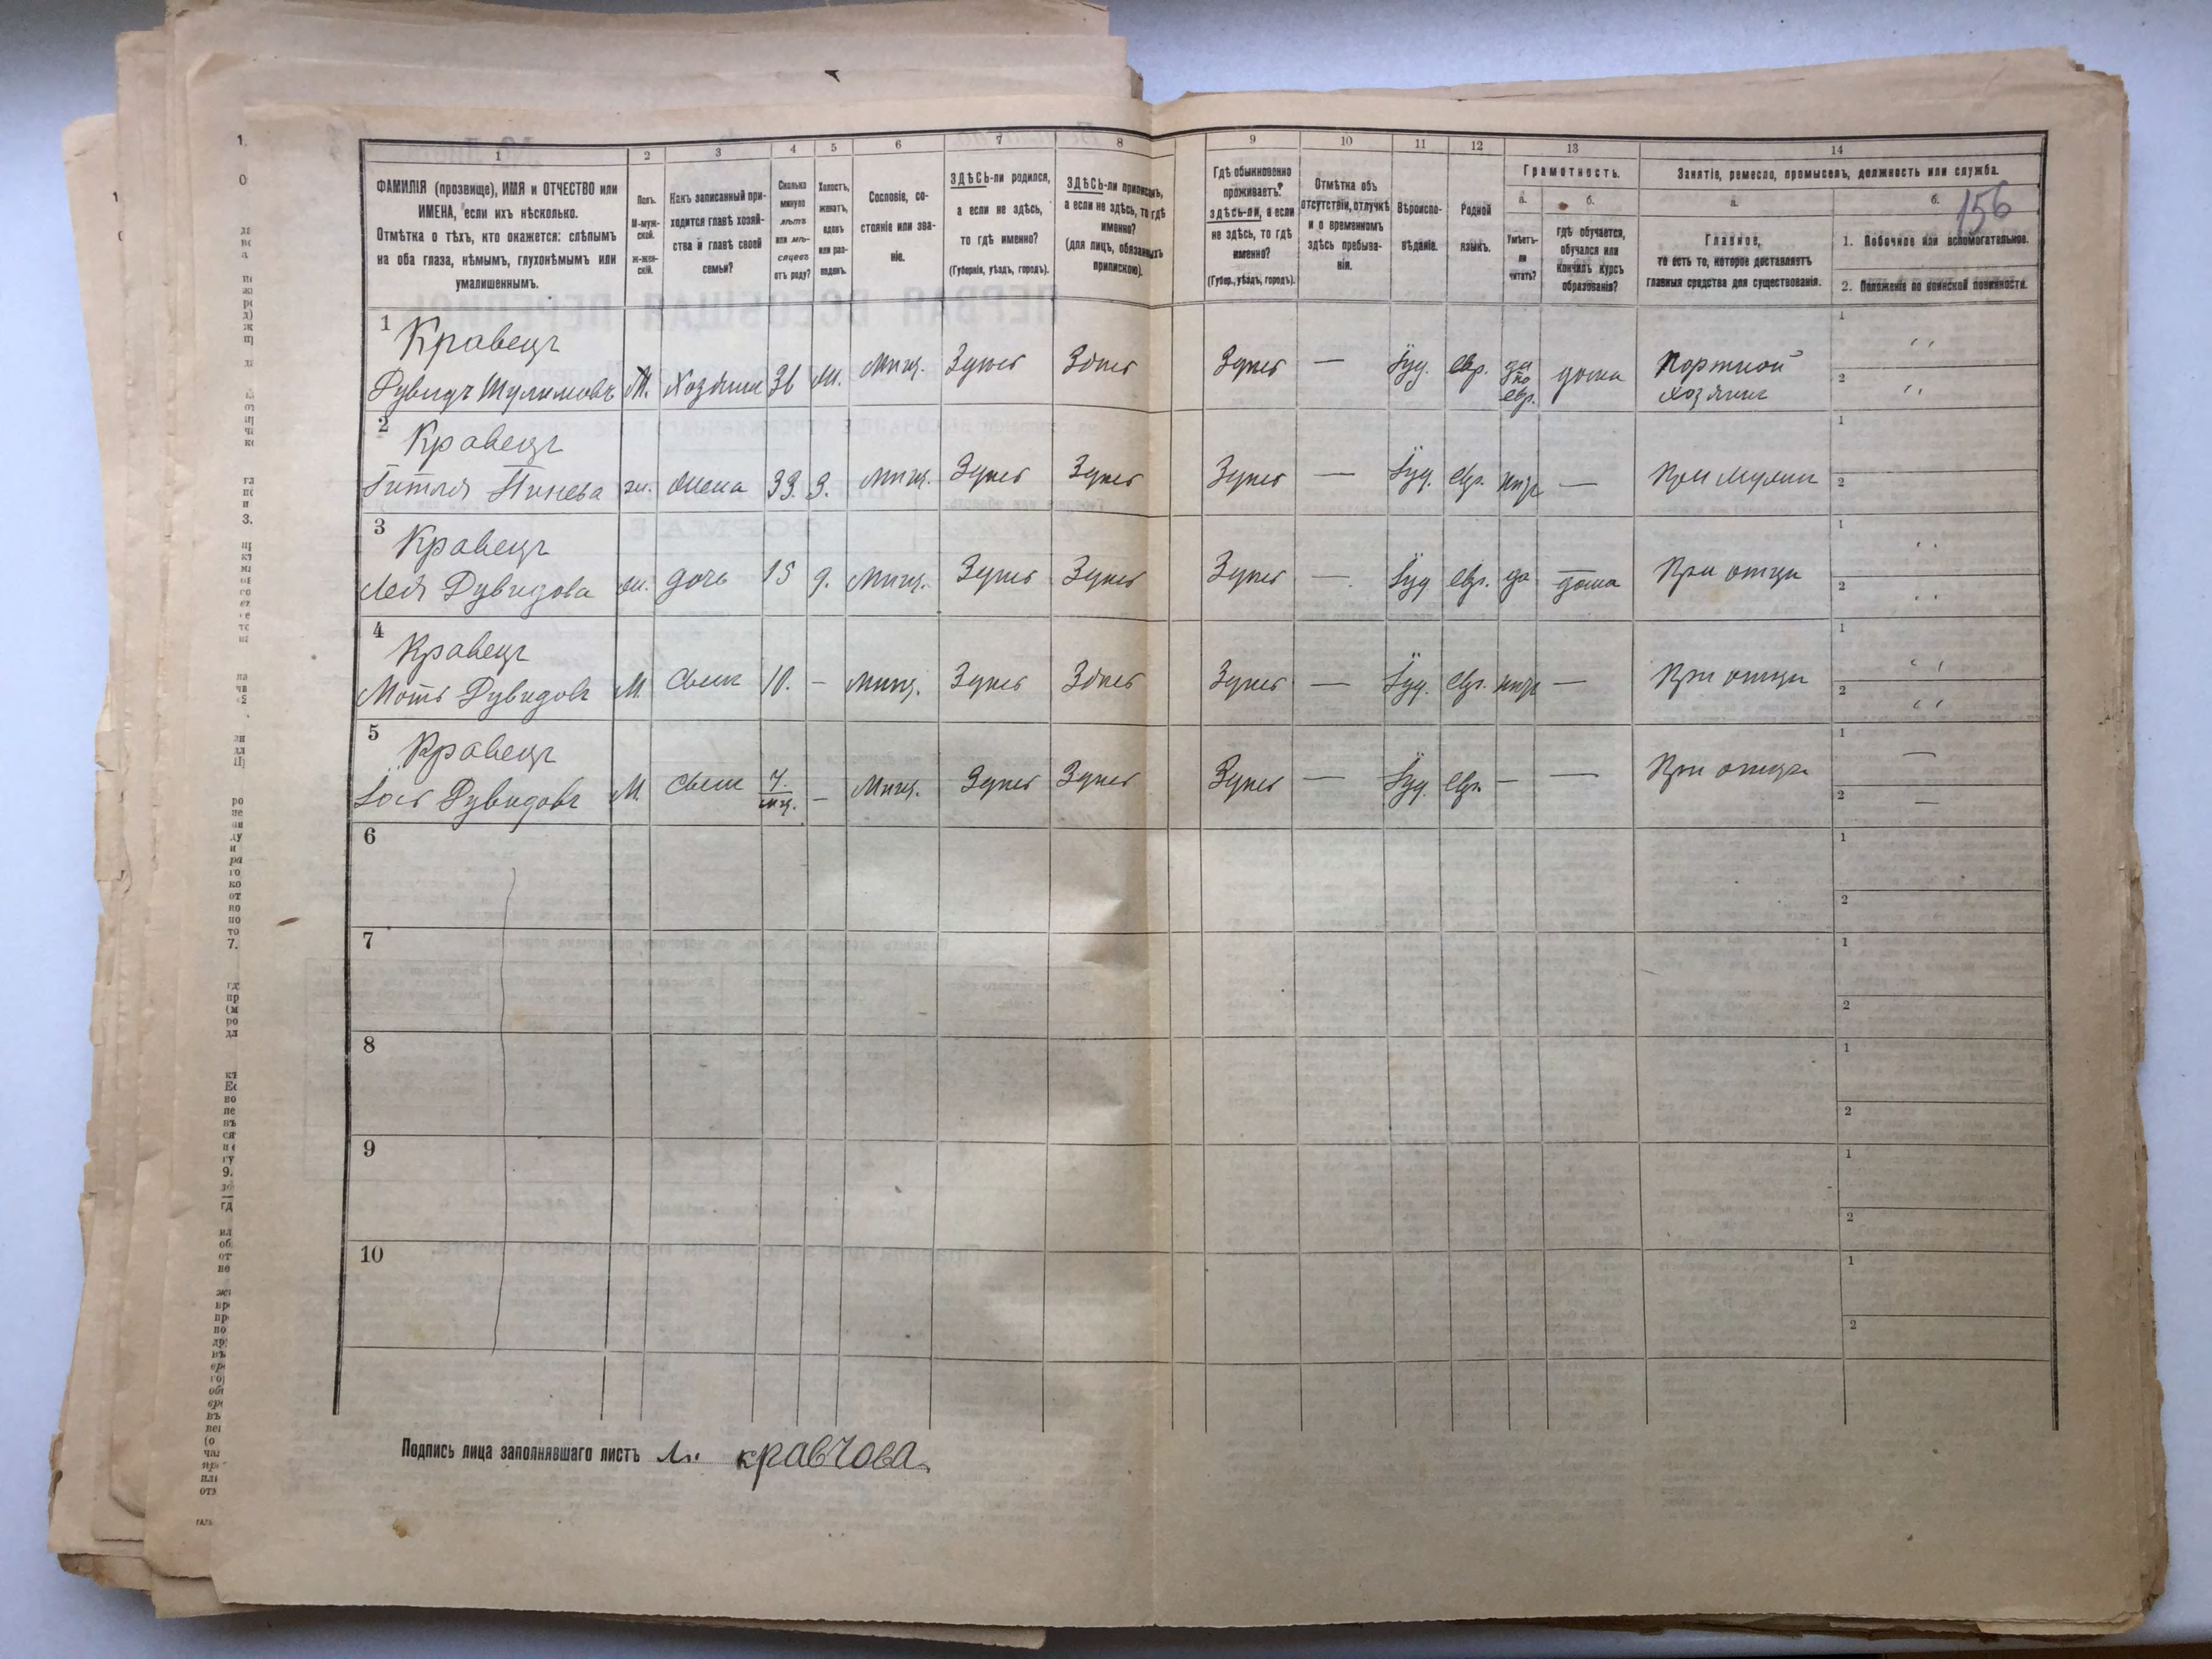 1 2 3 4 5 6 7 8 9 10 11 12 13 14
ФАМИЛІЯ (прозвище), ИМЯ и ОТЧЕСТВО или
ИМЕНА, если ихъ нѣсколько.
Отмѣтка о тѣхъ, кто окажется: слѣпымъ
на оба глаза, нѣмымъ, глухонѣмымъ или
умалишеннымъ.
Полъ.
М-муж-
ской.
Ж-жен-
скій.
Какъ записанный при-
ходится главѣ хозяй-
ства и главѣ своей
семьи?
Сколько
минуло
лѣтъ
или мѣ-
сяцевъ
отъ роду?
Холостъ,
женатъ,
вдовъ
или раз-
веденъ.
Сословіе, со-
стояніе или зва-
ніе.
ЗДѢСЬ-ли родился,
а если не здѣсь,
то гдѣ именно?
(Губернія, уѣздъ, городъ).
ЗДѢСЬ-ли приписанъ,
а если не здѣсь, то гдѣ
именно?
(для лицъ, обязанныхъ
припискою).
Гдѣ обыкновенно
проживаетъ?
ЗДѢСЬ-ли, а если
не здѣсь, то гдѣ
именно?
(Губер., уѣздъ, городъ).
Отмѣтка объ
отсутствіи, отлучкѣ
и о временномъ
здѣсь пребыва-
ніи.
Вѣроиспо-
вѣданіе.
Родной
языкъ.
Грамотность.
а. б.
Умѣетъ-
ли
читать?
гдѣ обучается,
обучался или
кончилъ курсъ
образованія?
Занятіе, ремесло, промыселъ, должность или служба.
а. б.
156
Главное,
то есть то, которое доставляетъ
главныя средства для существованія.
1. Побочное или вспомогательное.
2. Положеніе по воинской повинности.
1 Кравецъ
Дувидъ Шулимовъ М. Хозяинъ 36 Ж. Мѣщ. Здѣсь Здѣсь Здѣсь — Іуд. евр. да по евр. дома Портной хозяинъ
2 Кравецъ
Гитля Пинева ж. жена 33. З. Мѣщ. Здѣсь Здѣсь Здѣсь — Іуд. евр. нѣтъ — При мужѣ
3 Кравецъ
Лея Дувидова ж. дочь 15 д. Мѣщ. Здѣсь Здѣсь Здѣсь — Іуд. евр. да дома При отцѣ
4 Кравецъ
Моть Дувидовъ М. сынъ 10. – Мѣщ. Здѣсь Здѣсь Здѣсь — Іуд. евр. нѣтъ — При отцѣ
5 Кравецъ
Іось Дувидовъ М. сынъ – Мѣщ. Здѣсь Здѣсь Здѣсь — Іуд. евр. — — При отцѣ
6
7
8
9
10
Подпись лица заполнявшаго листъ кравчова